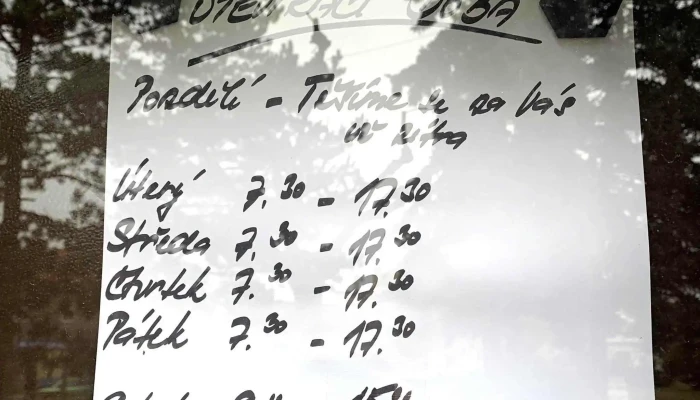 OTEVÍRACÍ DOBA
Pondělí - Těšíme se na Vás
už zítra
Úterý 7.30 - 17.30
Středa 7.30 - 17.30
Čtvrtek 7.30 - 17.30
Pátek 7.30 - 17.30